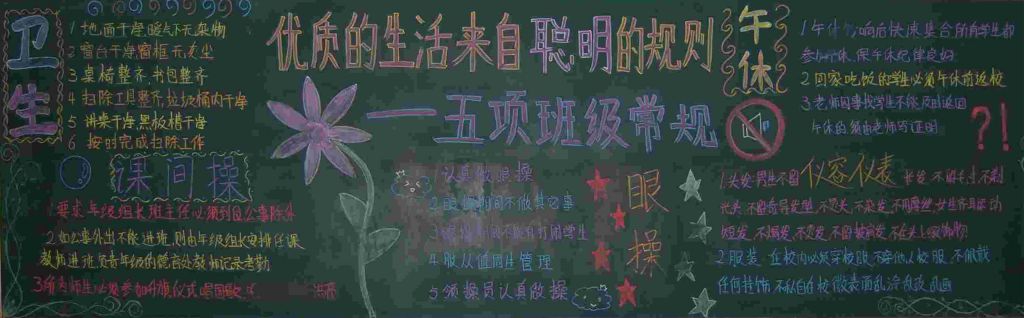 优质的生活来自聪明的规则
一五项班级常规
卫生
1 地面干净,
2 窗台干净窗框无灰尘
3 桌椅整齐,书包整齐
4 扫除工具整齐,垃圾桶内干净
5 讲桌干净黑板槽干净
6 按时完成扫除工作
课间操
1.要求年级组长班主任必须到位公事除外
2.如公事外出不能进班,则由年级组长安排任课
教师进班负责年级的德育处教师记录考勤
3.所有师生必须参加升旗仪式唱国歌
洪亮
眼操
1.认真做眼操
2.眼操期间不做其它事
4.服从值周生管理
5.领操员认真做操
午休
1.午休铃响后快速集合所有学生都
参加午休,保午休纪律良好
2.回家吃饭的学生必须午休前返校
3.老师因事找学生不能及时返回
午休的须由老师写证明
?!
仪容仪表
1.头发:男生不留长发,不剃
光头,不留奇异发型,不烫头,不染发,
短发,不烫发
2.服装:在校内必须穿校服,不佩戴
任何挂饰,